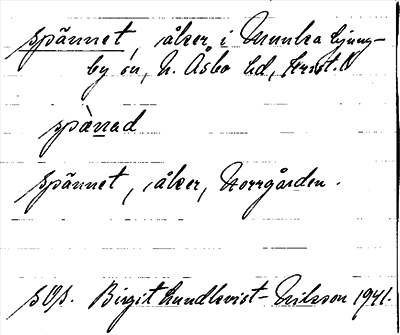 Spännet, åker i Munka Ljung-
by sn, N. Åsbo hd, Krist. l
spànad
Spännet, åker, Norrgården.
SOA. Birgit Lundkvist-Nilsson 1941.